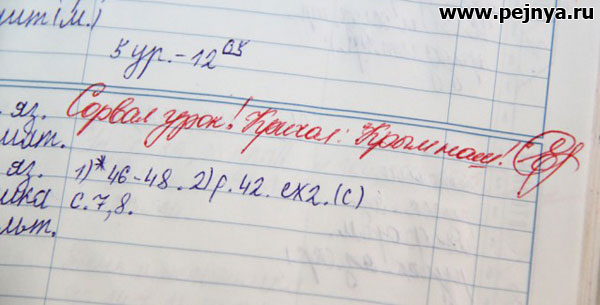 www.pejnya.ru
5 ур. - 12 05
яз. Сорвал урок! Кричал: Крым наш!
мат.
яз. 1)* 46-48. 2) р. 42. ex2. (c)
ика с. 7, 8.